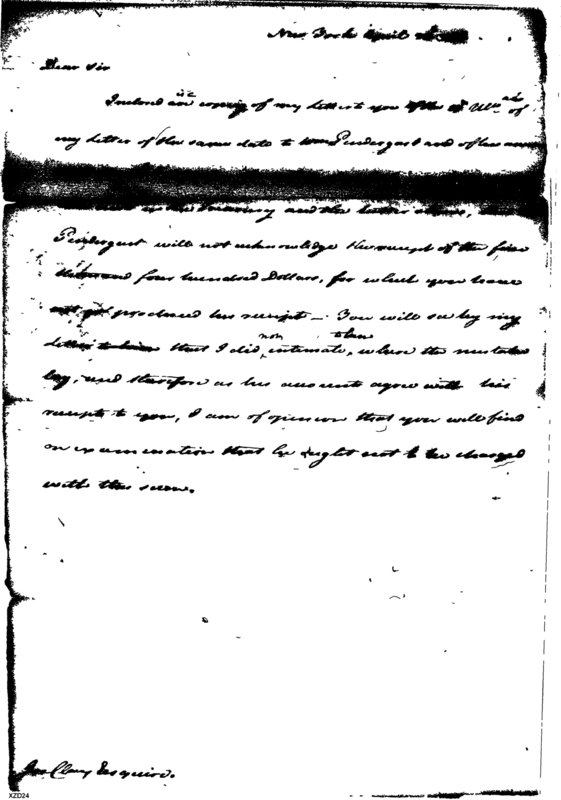 New York April
Dear Sir
Inclosed are copies of my letter to you of the Ulto. and of
my letter of the same date to Pendergast and of his
and the latter
Pendergast will not acknowledge the receipt of the five
thousand four hundred Dollars, for which you have
not yet produced his receipt — You will see by my
letter to him that I did not intimate to him, where the mistake
lay, and therefore as his accounts agree with his
receipts to you, I am of opinion that you will find
on examination that he ought not to be charged
with this sum.
Esquire.
XZD24